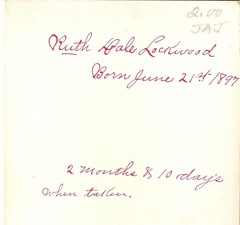 2.00
JAJ
Ruth Dale Lockwood
Born June 21st 1897
2 months & 10 days
when taken.